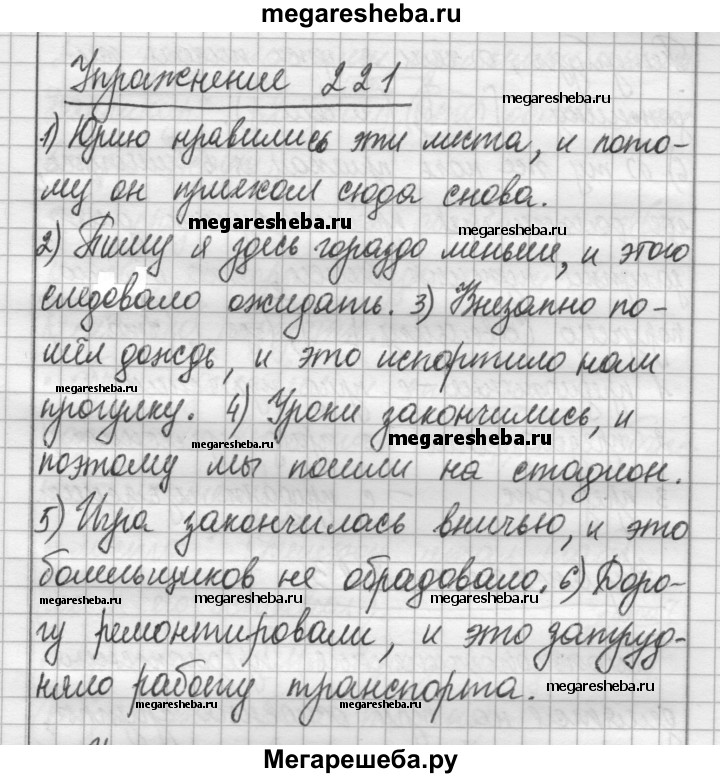 megaresheba.ru
Упражнение 221
megaresheba.ru
1) Юрию нравились эти места, и пото-
му он приехал сюда снова.
megaresheba.ru
2) Пишу я здесь гораздо меньше, и этого
следовало ожидать. 3) Внезапно по-
шёл дождь, и это испортило нам
megaresheba.ru megaresheba.ru
прогулку. 4) Уроки закончились, и
megaresheba.ru megaresheba.ru
поэтому мы пошли на стадион.
5) Игра закончилась вничью, и это
болельщиков не обрадовало. 6) Доро-
megaresheba.ru megaresheba.ru megaresheba.ru
гу ремонтировали, и это затруд-
няло работу транспорта. megaresheba.ru
megaresheba.ru megaresheba.ru
Мегарешеба.ру